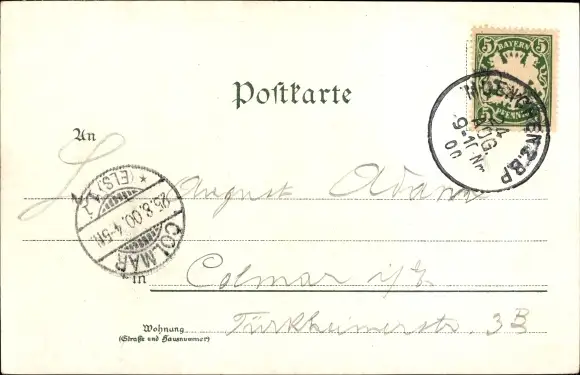 5 BAYERN 5
5 PFENNIG 5
MUENCHEN 2.B.P.
24
AUG.
9-10 Nm
00
Postkarte
An
August Adam
*(ELS)*
25.8.00.4-5N
COLMAR
in
Colmar i/E.
Wohnung
(Straße und Hausnummer)
Türkheimerstr. 3B